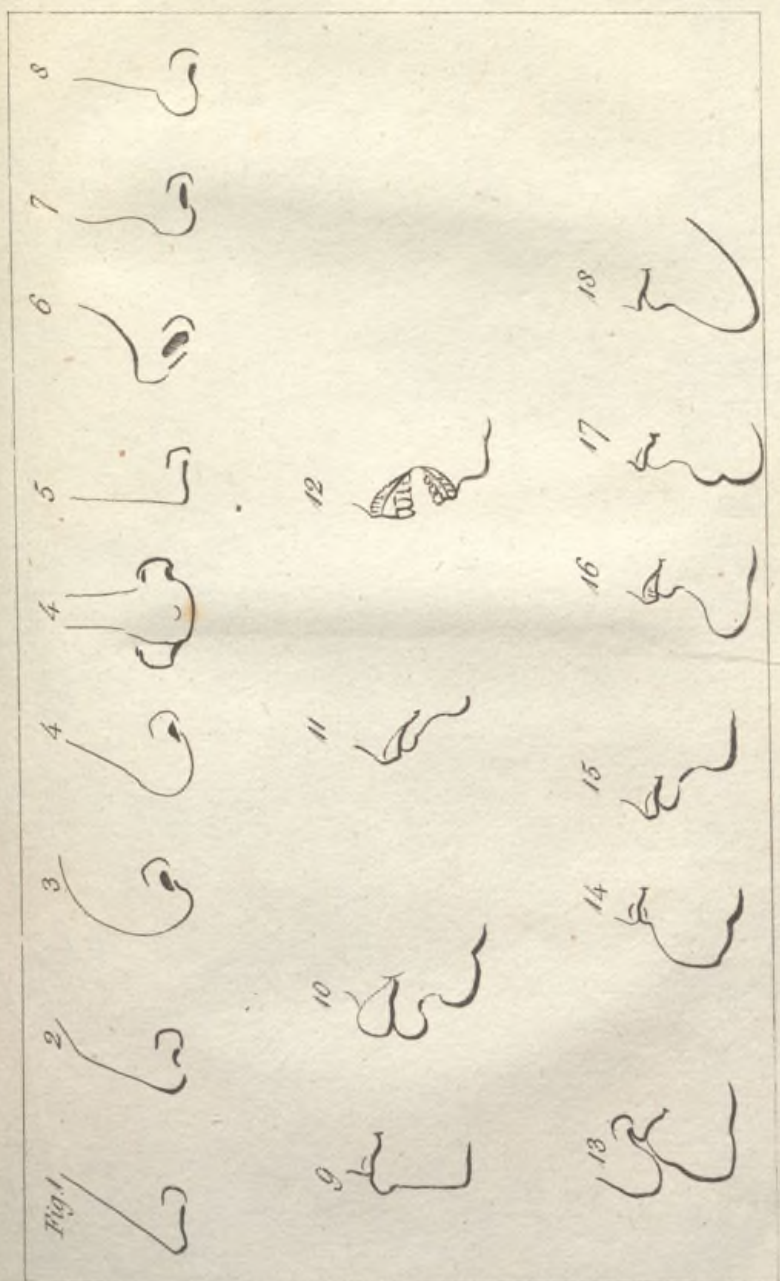 Fig.1 2 3 4 4 5 6 7 8
9 10 11 12
13 14 15 16 17 18